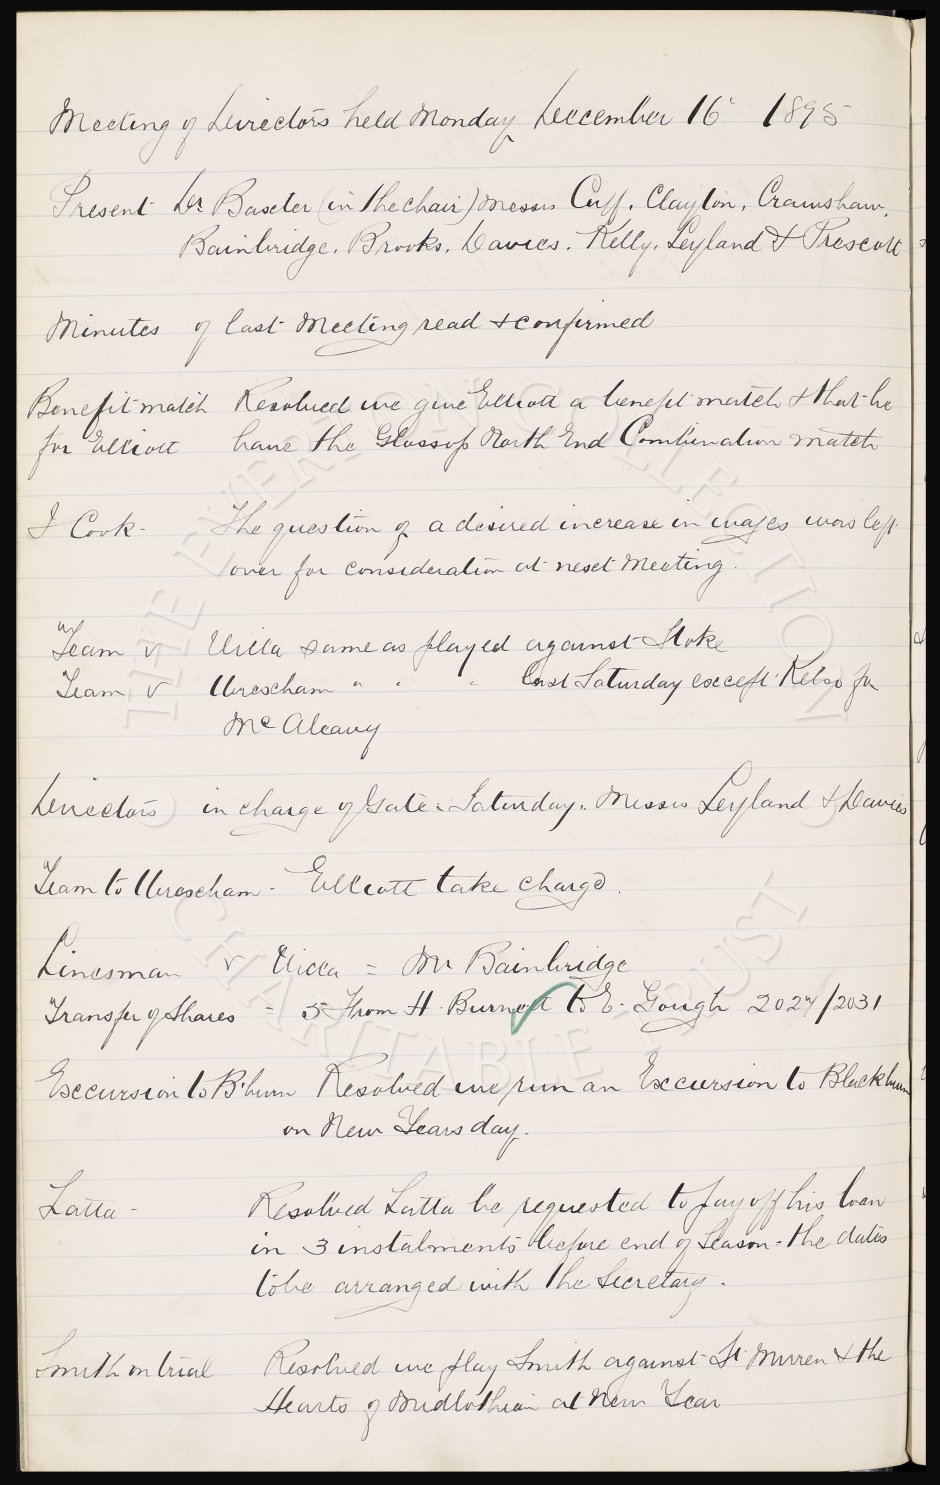 Meeting of Directors held Monday December 16th 1895
Present Dr. Baxter (in the chair) Messrs Cuff, Clayton, Cramshaw,
Bainbridge, Brooks, Davies, Kelly, Leyland & Prescott
Minutes of last Meeting read & confirmed
Benefit match Resolved we give Elliott a benefit match & that he
for Elliott have the Glossop North End Combination match
J Cook - The question of a desired increase in wages was left
over for consideration at next Meeting.
Team v Villa same as played against Stoke
Team v Wrexham " " " last Saturday except Kelso for
McAleavy
Directors in charge of Gate - Saturday. Messrs Leyland & Davies
Team to Wrexham - Elliott take charge.
Linesman v Villa = Mr Bainbridge
Transfer of Shares = 5 From H. Burnett to E. Gough 2027/2031
Excursion to B'burn Resolved we run an Excursion to Blackburn
on New Years day.
Latta - Resolved Latta be requested to pay off his loan
in 3 instalments before end of Season - the dates
to be arranged with the Secretary.
Smith on trial Resolved we play Smith against St Mirren & the
Hearts of Midlothian at New Year
THE EVERTON COLLECTION
CHARITABLE TRUST